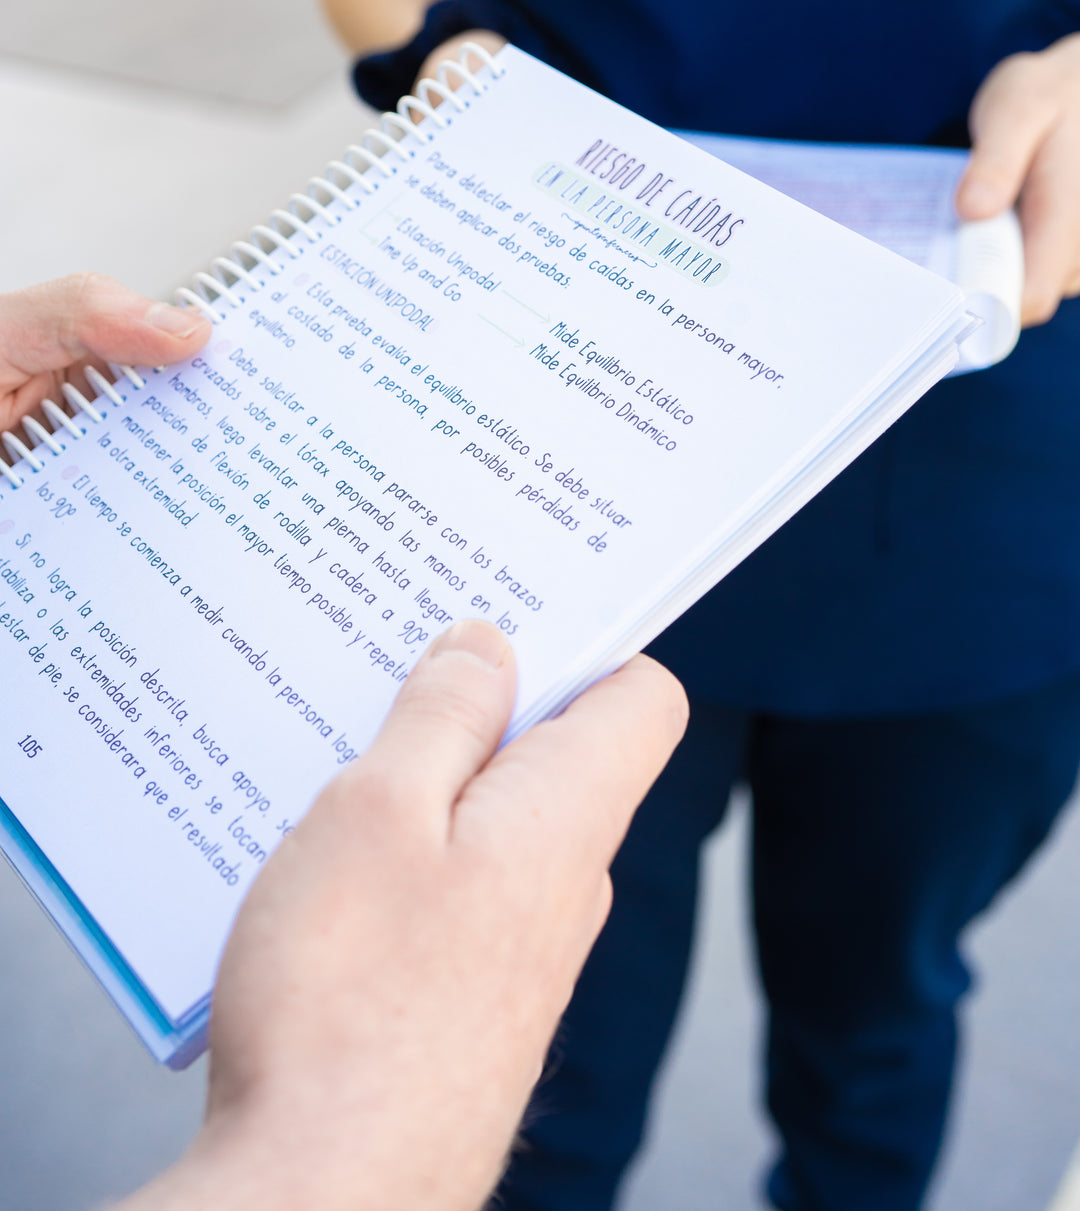 RIESGO DE CAÍDAS
EN LA PERSONA MAYOR
Para detectar el riesgo de caídas en la persona mayor,
se deben aplicar dos pruebas:
Estación Unipodal
Mide Equilibrio Estático
Time Up and Go
Mide Equilibrio Dinámico
ESTACIÓN UNIPODAL
Esta prueba evalúa el equilibrio estático. Se debe situar
al costado de la persona, por posibles pérdidas de
equilibrio.
Debe solicitar a la persona pararse con los brazos
cruzados sobre el tórax apoyando las manos en los
hombros, luego levantar una pierna hasta llegar
posición de flexión de rodilla y cadera a 90º,
mantener la posición el mayor tiempo posible y repetir
la otra extremidad.
El tiempo se comienza a medir cuando la persona logr
los 90º.
Si no logra la posición descrita, busca apoyo, se
tabiliza o las extremidades inferiores se tocan
estar de pie, se considerara que el resultado
105